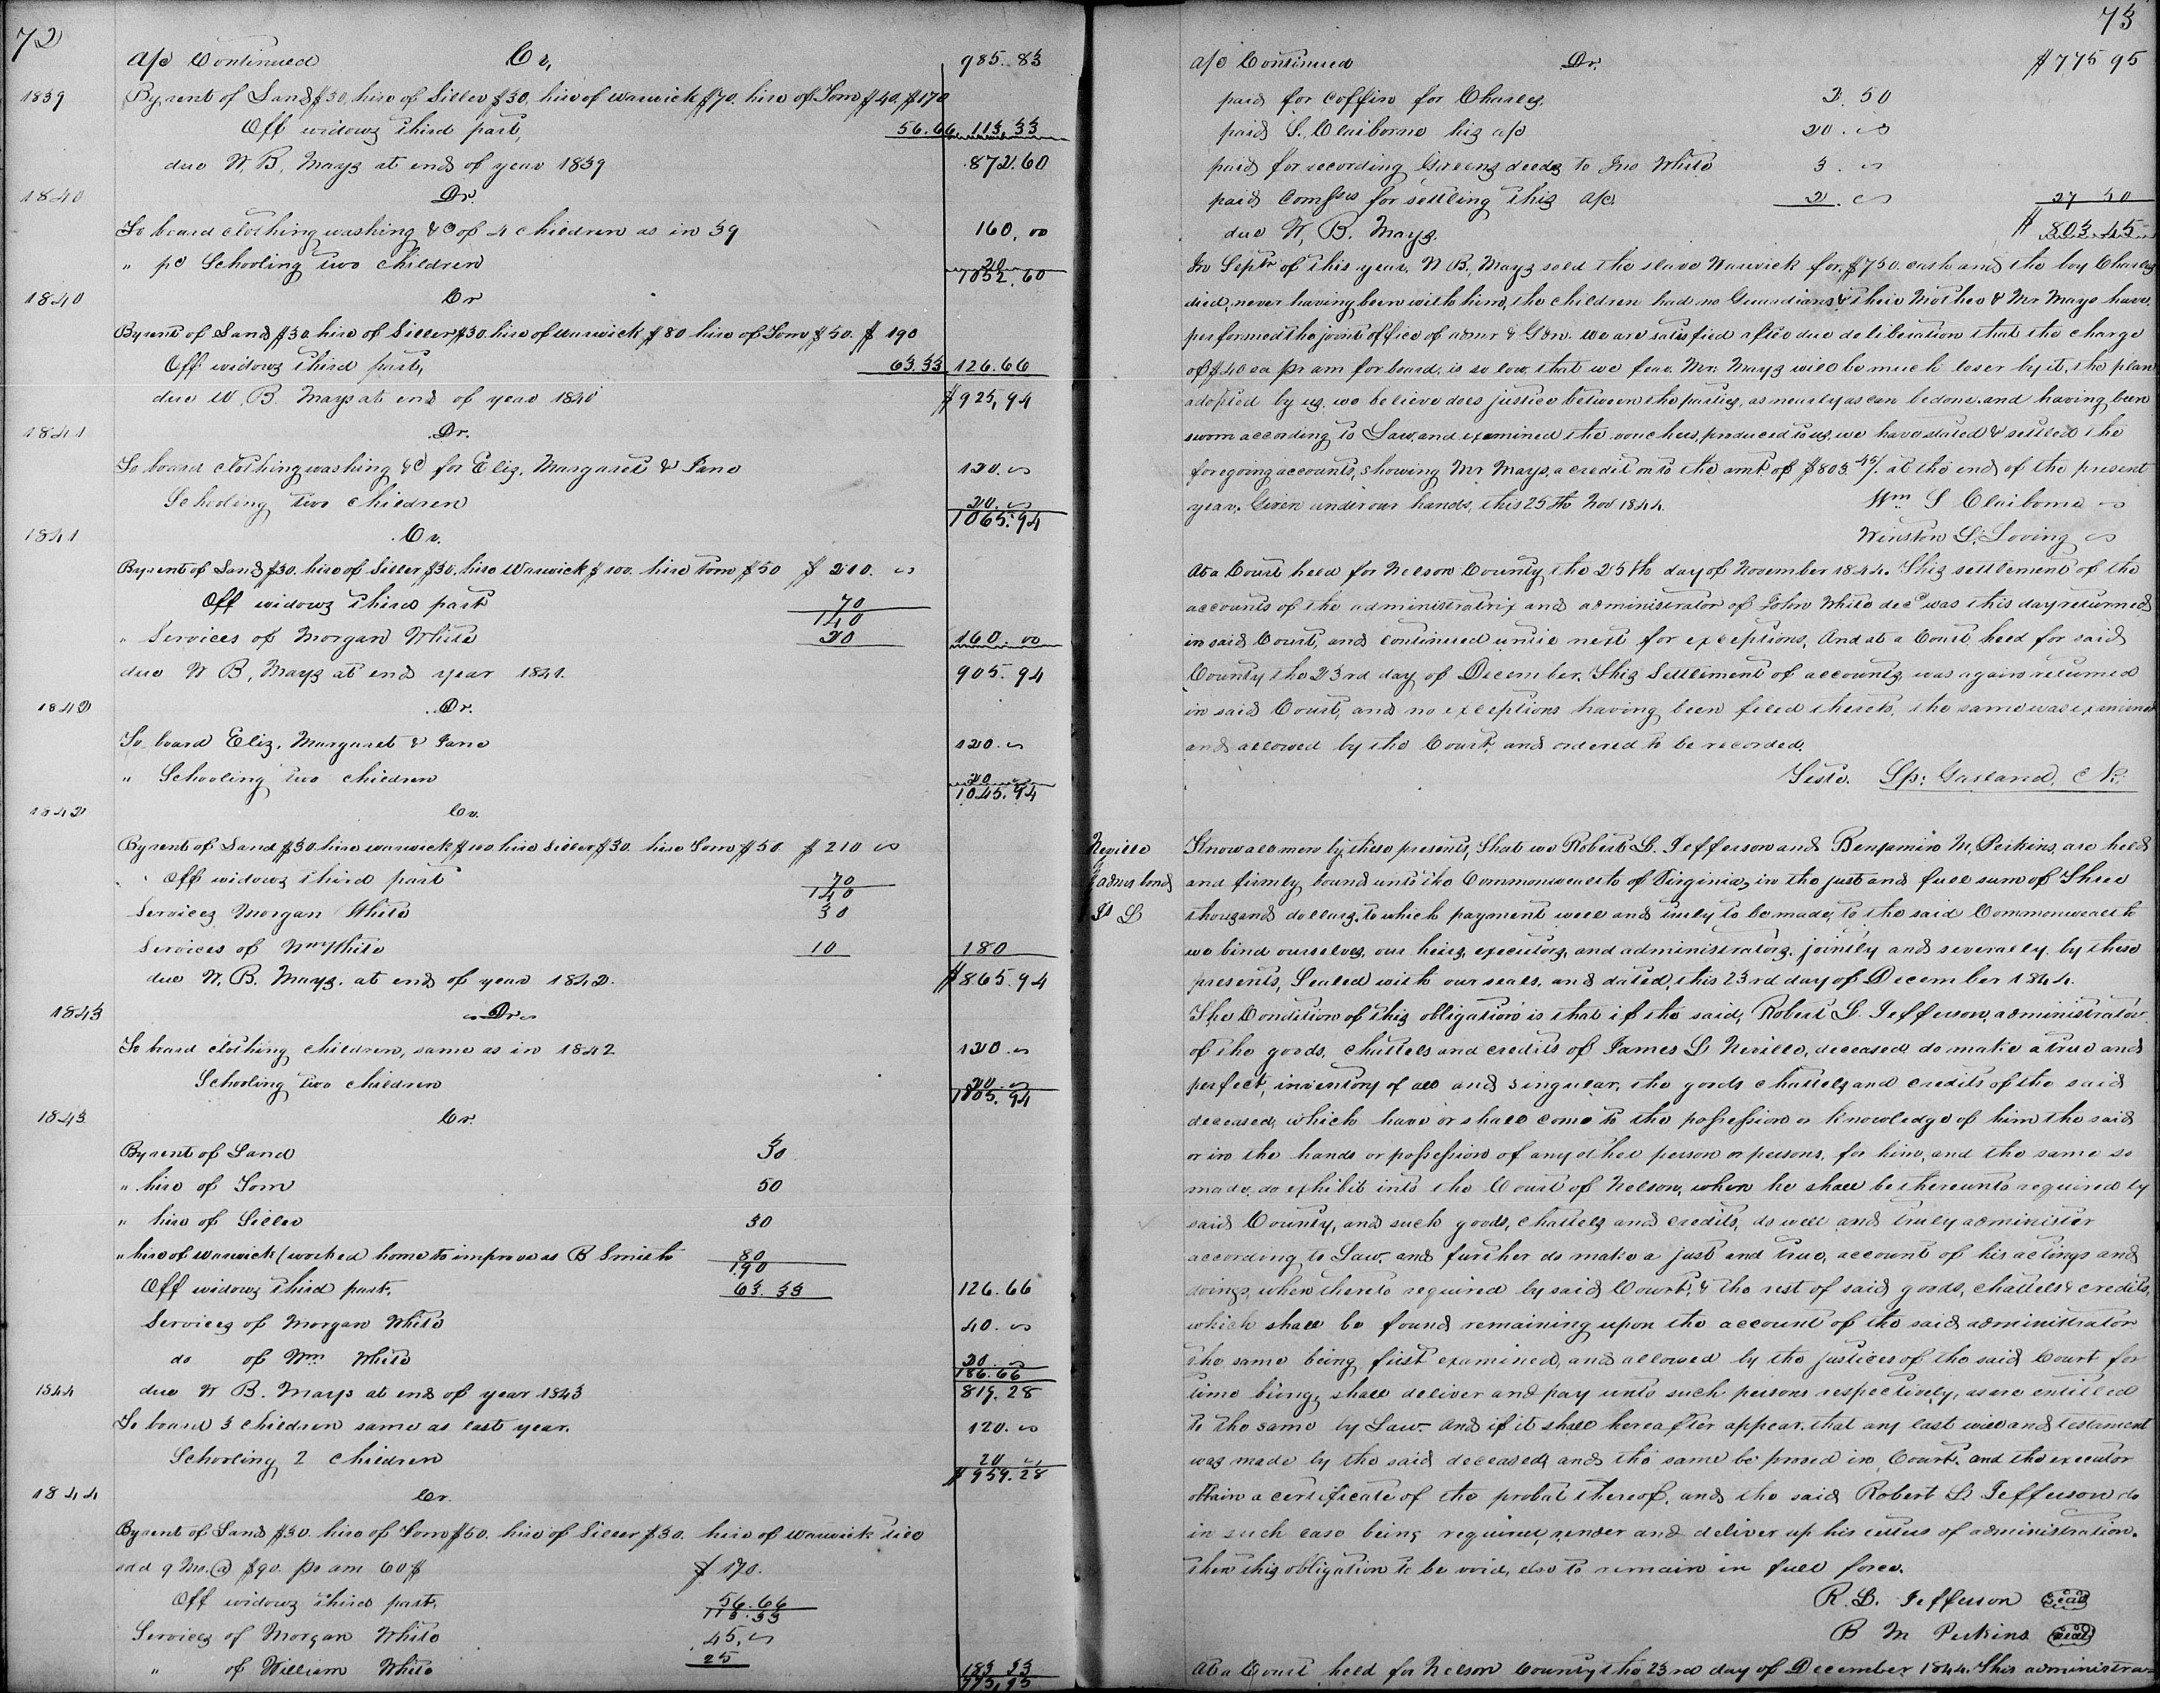 72
a/c Continued Cr. 985.83
1839 By rent of Land $30, hire of Siller $30, hire of Warwick $70. hire of Tom $40. $170
Off widows third part, 56.66 113.33
due W. B. Mays at end of year 1839 872.60
1840 Dr.
To board clothing washing &c of 4 children as in 39 160.00
" pd Schooling two children 20
1052.60
1840 Cr
By rent of Land $30. hire of Siller $30. hire of Warwick $80 hire of Tom $50. $190
Off widows third part, 63.33 126.66
due W. B. Mays at end of year 1840 $925.94
1841 Dr.
To board clothing washing &c for Eliz. Margaret & Jane 120.
Schooling two children 20.
1065.94
1841 Cr.
By rent of Land $30. hire of Siller $30. hire Warwick $100. hire Tom $50 $210.
Off widows third part 70
140
" Services of Morgan White 20 160.00
due W B. Mays at end year 1841. 905.94
1842 Dr.
To board Eliz. Margaret & Jane 120.
" Schooling two children 20
1045.94
1842 Cr.
By rent of Land $30. hire Warwick $100 hire Siller $30 hire Tom $50. $210
Off widows third part 70
140
Services Morgan White 30
Services of Wm White 10 180
due W. B. Mays. at end of year 1842. $865.94
1843 Dr
To board clothing children, same as in 1842 120.
Schooling two children 20.
1005.94
1843 Cr.
By rent of Land 30
" hire of Tom 50
" hire of Siller 30
" hire of Warwick (worked home to improve as B Smith 80
190
Off widows third part. 63.33 126.66
Services of Morgan White 40.
do of Wm White 20
186.66
1844 due W B. Mays at end of year 1843 819.28
To board 3 children same as last year. 120.
Schooling 2 children 20
$959.28
1844 Cr.
By rent of Land $30. hire of Tom $50. hire of Siller $30. hire of Warwick till
sold 9 Mo. @ $90. pr am 60$ $170.
Off widows third part. 56.66
113.33
Services of Morgan White 45.
" of William White 25 183.33
775.95
73
a/c Continued Dr. $775 95
paid for coffin for Charles. 2.50
paid S. Claiborne his a/c 20.
paid for recording Greens deeds to Jno White 3.
paid Comssrs for settling this a/c. 2. 27 50
due W. B. Mays. $803.45
In Septr of this year. W B. Mays sold the slave Warwick for $750. cash and the boy Charles
died, never having been with him, the children had no Guardians & their Mother & Mr Mays have
performed the joint office of admr & Gdn. We are satisfied after due deliberation that the charge
of $40 ea pr am for board, is so low, that we fear Mr. Mays will be much loser by it, the plan
adopted by us, we believe does justice between the parties, as nearly as can be done. and having been
sworn according to Law, and examined the vouchers, produced to us, we have stated & settled the
foregoing accounts, showing Mr Mays, a credit on to the amt of $803.45/. at the end of the present
year. Given under our hands, this 25th Nov 1844.
Wm S Claiborne
Winston L. Loving
At a Court held for Nelson County the 25th day of November 1844. This settlement of the
accounts of the administratrix and administrator of John White decd was this day returned
in said Court, and continued until next for exceptions, And at a Court held for said
County the 23rd day of December. This Settlement of accounts was again returned
in said Court, and no exceptions having been filed thereto. the same was examined
and allowed by the Court, and ordered to be recorded.
Teste. Sp: Garland. C N.
Neville Know all men by these presents, That we Robert L. Jefferson and Benjamin M. Perkins, are held
admrs bond and firmly bound unto the Commonwealth of Virginia, in the just and full sum of Three
thousand dollars. to which payment well and truly to be made, to the said Commonwealth
we bind ourselves, our heirs, executors, and administrators. jointly and severally. by these
presents, Sealed with our seals. and dated, this 23rd day of December 1844.
The Condition of this obligation is that if the said, Robert L. Jefferson, administrator
of the goods, chattels and credits of James L Neville, deceased do make a true and
perfect, inventory of all and singular, the goods chattels, and credits of the said
deceased, which have or shall come to the possession or knowledge of him the said
or in the hands or possession of any other person or persons, for him, and the same so
made, do exhibit into the Court of Nelson, when he shall be thereunto required by
said County, and such goods, chattels and credits, do well and truly administer
according to Law. and further do make a just and true, account of his actings and
doings, when thereto required by said Court, & the rest of said goods, chattels & credits,
which shall be found remaining upon the account of the said administrator
the same being first examined, and allowed by the justices of the said Court for
time being, shall deliver and pay unto such persons respectively, as are entitled
to the same by Law. And if it shall hereafter appear. that any last will and testament
was made by the said deceased, and the same be proved in Court. and the executor
obtain a certificate of the probat thereof, and the said Robert L Jefferson do
in such case being required, render and deliver up his letters of administration.
then this obligation to be void, else to remain in full force.
R. L. Jefferson Seal
B M Perkins Seal
At a Court held for Nelson County the 23rd day of December 1844. This administra-